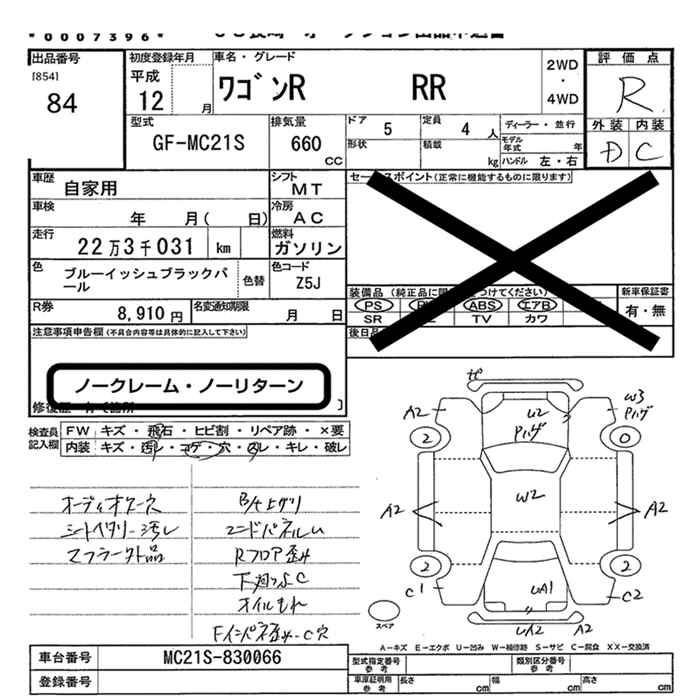 *0007396*
出品番号
[854]
84
初度登録年月
平成
12 月
車名・グレード
ワゴンR RR
2WD
・
4WD
評価点
R
外装 内装
D C
型式
GF-MC21S
排気量
660
CC
ドア 5
定員 4 人
ディーラー・並行
形状
積載 kg
モデル年式 年
ハンドル 左・右
車歴 自家用
シフト MT
車検 年 月( 日)
冷房 AC
走行 22万3千031 km
燃料 ガソリン
色 ブルーイッシュブラックパール
色替
色コード Z5J
R券 8,910円
名変通知期限 月 日
セールスポイント(正常に機能するものに限ります)
装備品
PS ABS エアB
SR TV カワ
新車保証書
有・無
後日品
注意事項申告欄(不具合内容等は具体的に記入して下さい)
ノークレーム・ノーリターン
検査員記入欄
FW キズ・飛石・ヒビ割・リペア跡・×要
内装 キズ・汚レ・コゲ・穴・スレ・キレ・破レ
オーディオケース
シートヘタリー汚レ
マフラー外品
下廻つぶC
オイルもれ
Rフロア歪み
A2
U2
Pハゲ
W3
Pハゲ
2
0
A2
W2
A2
2
2
C1
UA1
C2
UA2
A2
スペア
A-キズ E-エクボ U-凹み W-補修跡 S-サビ C-腐食 XX-交換済
車台番号 MC21S-830066
登録番号
型式指定番号 参考
類別区分番号 参考
車庫証明用 参考
長さ cm
幅 cm
高さ cm